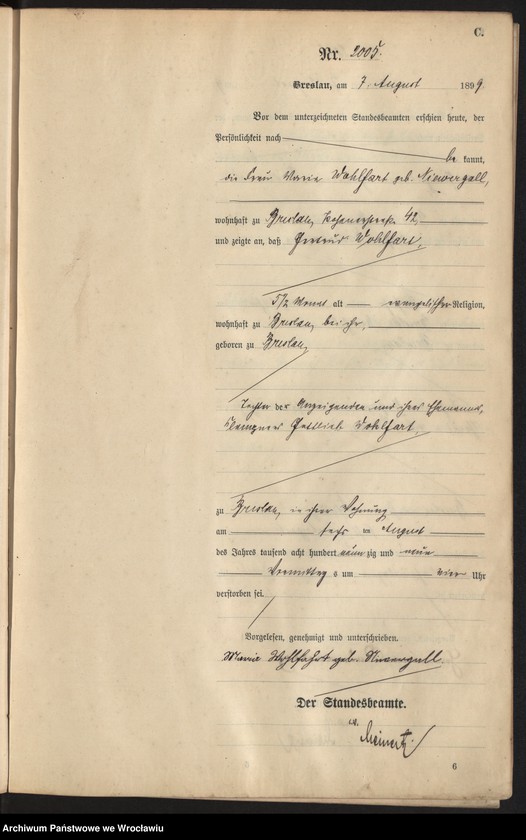 C.
Nr. 2005.
Breslau, am 7. August 1899.
Vor dem unterzeichneten Standesbeamten erschien heute, der
Persönlichkeit nach
be kannt,
die Frau Marie Wohlfart geb. Niewergall,
wohnhaft zu Breslau, 42
und zeigte an, daß Gertrud Wohlfart,
5 1/2 Monat alt evangelischer Religion,
wohnhaft zu Breslau, bei ihr,
geboren zu Breslau,
Tochter der Anzeigenden und ihres Ehemanns,
Klempners Gottlieb Wohlfart,
zu Breslau, in ihrer Wohnung
am sechs ten August
des Jahres tausend acht hundert neun zig und neun
Vormittag s um vier Uhr
verstorben sei.
Vorgelesen, genehmigt und unterschrieben.
Marie Wohlfahrt geb. Niewergall.
Der Standesbeamte.
6
Archiwum Państwowe we Wrocławiu